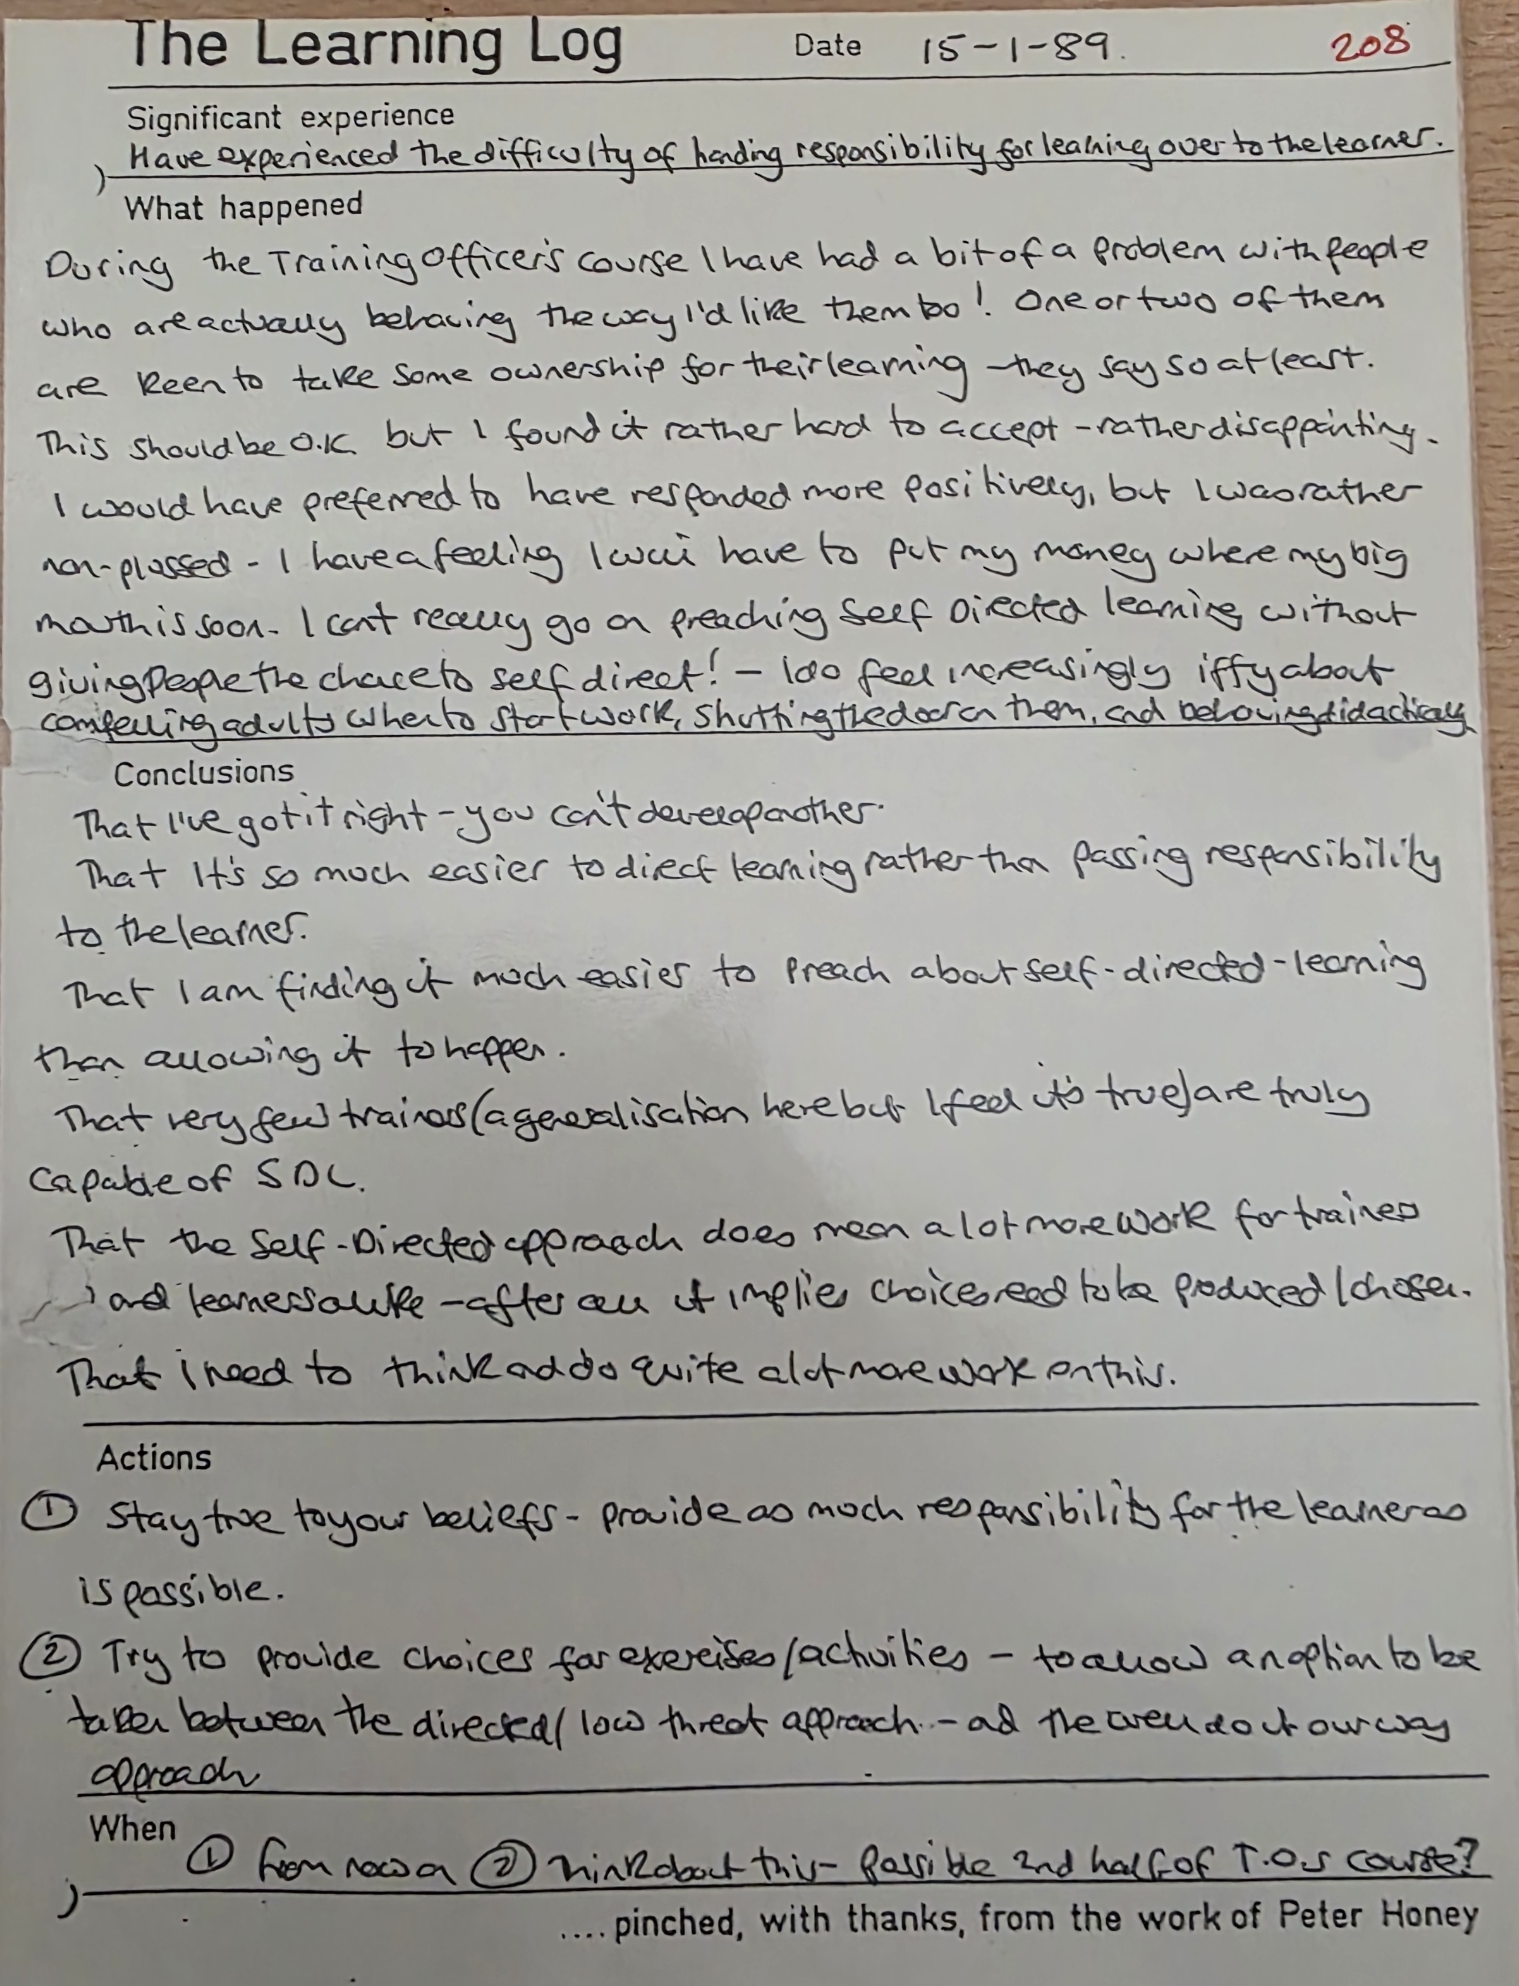 The Learning Log Date 15-1-89. 208
Significant experience
Have experienced the difficulty of handing responsibility for learning over to the learner.
What happened
During the Training Officer's course I have had a bit of a problem with people
who are actually behaving the way I'd like them to! One or two of them
are keen to take some ownership for their learning - they say so at least.
This should be O.K. but I found it rather hard to accept - rather disappointing.
I would have preferred to have responded more positively, but I was rather
non-plussed - I have a feeling I will have to put my money where my big
mouth is soon. I can't really go on preaching Self Directed learning without
giving People the chance to self direct! - I do feel increasingly iffy about
compelling adults when to start work, shutting the door on them, and behaving didactically
Conclusions
That I've got it right - you can't develop another.
That It's so much easier to direct learning rather than passing responsibility
to the learner.
That I am finding it much easier to preach about self-directed-learning
than allowing it to happen.
That very few trainers (a generalisation here but I feel it's true) are truly
Capable of SDL.
That the Self-Directed approach does mean a lot more work for trainers
and learners alike - after all it implies choices need to be produced/chosen.
That I need to think and do quite a lot more work on this.
Actions
① Stay true to your beliefs - provide as much responsibility for the learner as
is possible.
② Try to provide choices for exercises/activities - to allow an option to be
taken between the directed/low threat approach - and the we'll do it our way
approach
When
① From now on ② Think about this - Possible 2nd half of T.O.s course?
.... pinched, with thanks, from the work of Peter Honey